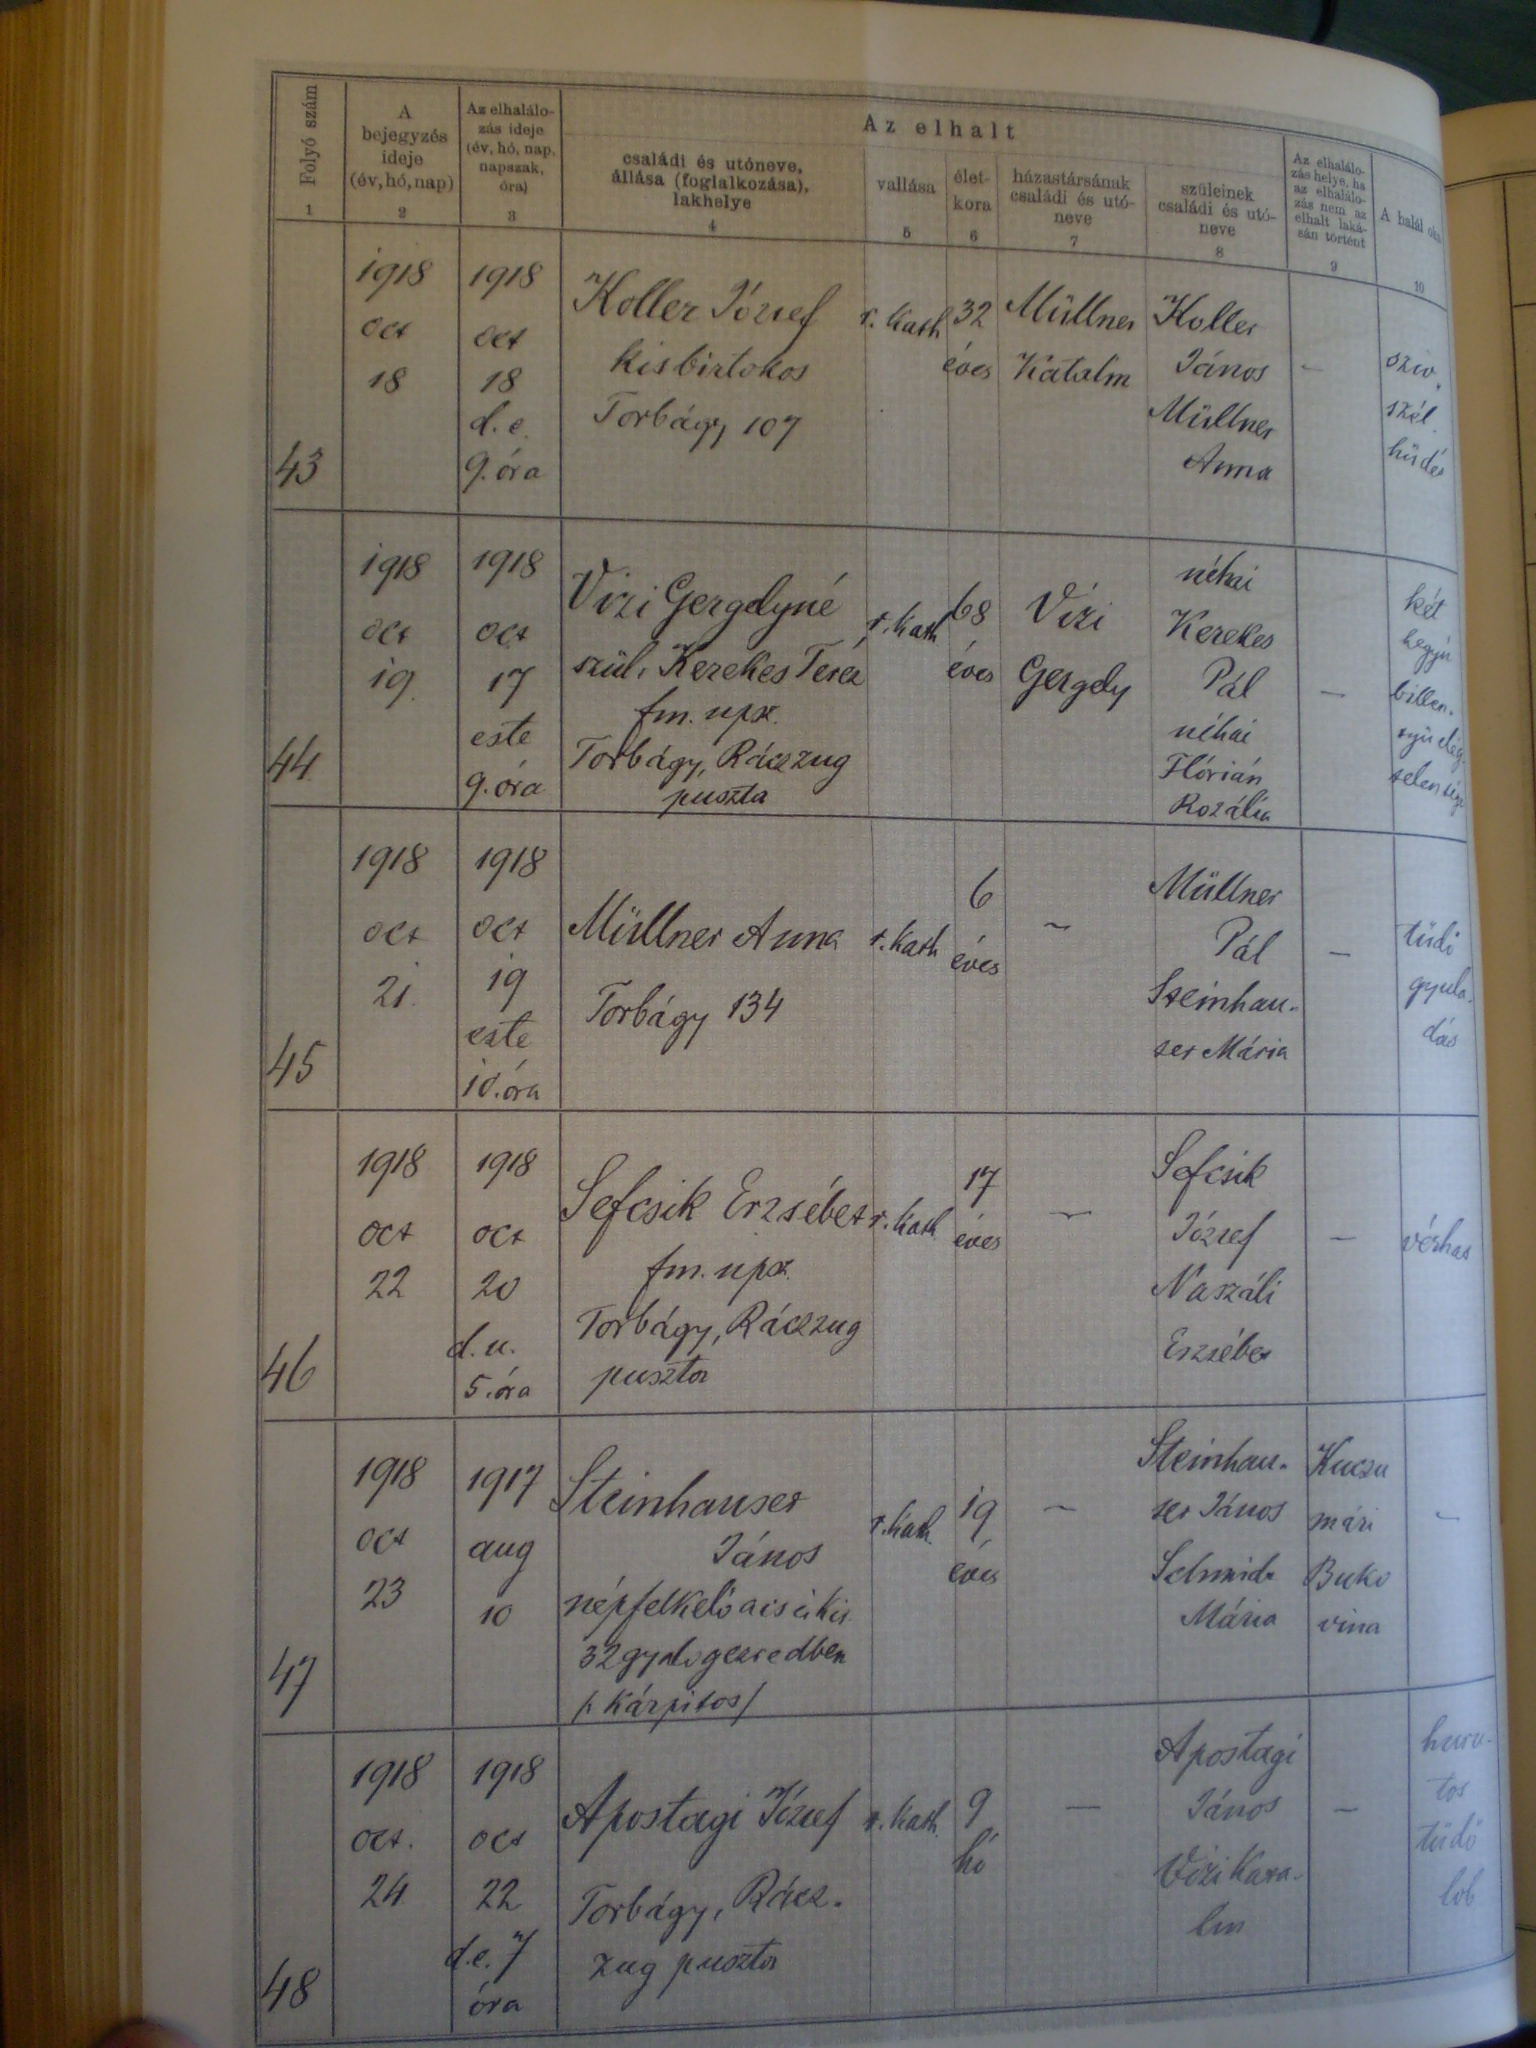 Folyó szám
1
A
bejegyzés
ideje
(év, hó, nap)
2
Az elhalálo-
zás ideje
(év, hó, nap,
napszak,
óra)
3
Az elhalt
családi és utóneve,
állása (foglalkozása),
lakhelye
4
vallása
5
élet-
kora
6
házastársának
családi és utó-
neve
7
szüleinek
családi és utó-
neve
8
Az elhalálo-
zás helye, ha
az elhalálo-
zás nem az
elhalt laká-
sán történt
9
A halál oka
10
43
1918
oct
18
1918
oct
18
d. e.
9. óra
Koller József
kisbirtokos
Torbágy 107
r. kath
32
éves
Müllner
Katalin
Koller
János
Müllner
Anna
-
sziv
szél
hüdés
44
1918
oct
19
1918
oct
17
este
9. óra
Vizi Gergelyné
szül. Kerekes Teréz
fm. npsz.
Torbágy, Ráczzug
puszta
r. kath
68
éves
Vizi
Gergely
néhai
Kerekes
Pál
néhai
Flórián
Rozália
-
két
hegyü
billen-
tyü elég-
telensége
45
1918
oct
21.
1918
oct
19
este
10. óra
Müllner Anna
Torbágy 134
r. kath
6
éves
-
Müllner
Pál
Steinhau-
ser Mária
-
tüdő
gyula-
dás
46
1918
oct
22
1918
oct
20
d. u.
5. óra
Sefcsik Erzsébet
fm. npsz.
Torbágy, Ráczzug
puszta
r. kath
17
éves
-
Sefcsik
József
Naszáli
Erzsébet
-
vérhas
47
1918
oct
23
1917
aug
10
Steinhauser
János
népfelkelő a cs és kir
32 gyalogezredben
/: Kárpitos /
r. kath.
19
éves
-
Steinhau-
ser János
Schmidt
Mária
Kuczu
mári
Buko
vina
-
48
1918
oct.
24
1918
oct
22
d. e. 7
óra
Apostagi József
Torbágy, Rácz-
zug puszta
r. kath.
9
hó
-
Apostagi
János
Vizi Kata-
lin
-
huru-
tos
tüdő
lob